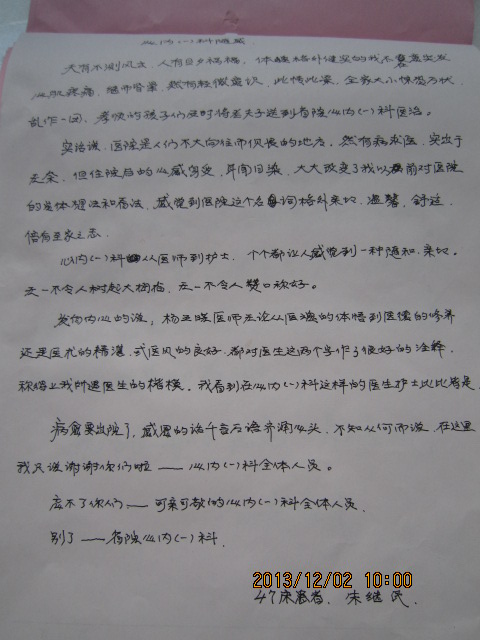 心内(一)科随感
天有不测风云，人有旦夕祸福，体魄格外健实的我不意突发
心肌疼痛，继而昏晕，然有轻微意识，此情此景，全家大小惊慌万状，
乱作一团，孝顺的孩子们及时将老夫子送到省院心内(一)科医治。
实话说，医院是人们不大向往而仅畏的地方，然有病求医，实出于
无奈，但住院后的心感身受，耳闻目染，大大改变了我以前对医院
的具体想法和看法，感觉到医院这个名词格外亲切、温馨、舒适，
倍有至家之念。
心内(一)科从医师到护士，个个都让人感觉到一种随和、亲切。
无一不令人树起大拇指，无一不令人赞口称好。
发自内心的说，杨亚瑛医师无论从医德的体悟到医儒的修养
还是医尤的精湛，式医风的良好，都对医生这两个字作了很好的注释，
称得上我帅医生的楷模，我看到在心内(一)科这样的医生护士比比皆是。
病愈要出院了，感恩的话千言万语齐涌心头，不知从何而说，在这里
我只说谢谢你们啦——心内(一)科全体人员。
忘不了你们——可亲可敬的心内(一)科全体人员。
别了——省院心内(一)科.
2013/12/02 10:00
47床患者，朱继民.